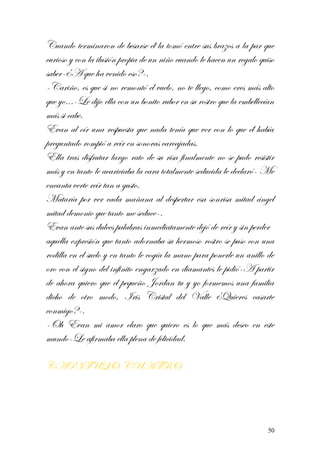 Cuando terminaron de besarse él la tomó entre sus brazos a la par que
curioso y con la ilusión propia de un niño cuando le hacen un regalo quiso
saber-¿A que ha venido eso?-.
-Cariño, es que si no remontó el vuelo, no te llego, como eres más alto
que yo...-Le dijo ella con un bonito rubor en su rostro que la embellecían
más si cabe.
Evan al oír una respuesta que nada tenía que ver con lo que él había
preguntado rompió a reír en sonoras carcajadas.
Ella tras disfrutar largo rato de su risa finalmente no se pudo resistir
más y en tanto le acariciaba la cara totalmente seducida le declaró- Me
encanta verte reír tan a gusto.
Mataría por ver cada mañana al despertar esa sonrisa mitad ángel
mitad demonio que tanto me seduce-.
Evan ante sus dulces palabras inmediatamente dejó de reír y sin perder
aquella expresión que tanto adornaba su hermoso rostro se puso con una
rodilla en el suelo y en tanto le cogía la mano para ponerle un anillo de
oro con el signo del infinito engarzado en diamantes le pidió-A partir
de ahora quiero que el pequeño Jordan tu y yo formemos una familia
dicho de otro modo, Iris Cristal del Valle ¿Quieres casarte
conmigo?-.
-Oh Evan mi amor claro que quiero es lo que más deseo en este
mundo-Le afirmaba ella plena de felicidad.
CAPITULO CUATRO
50